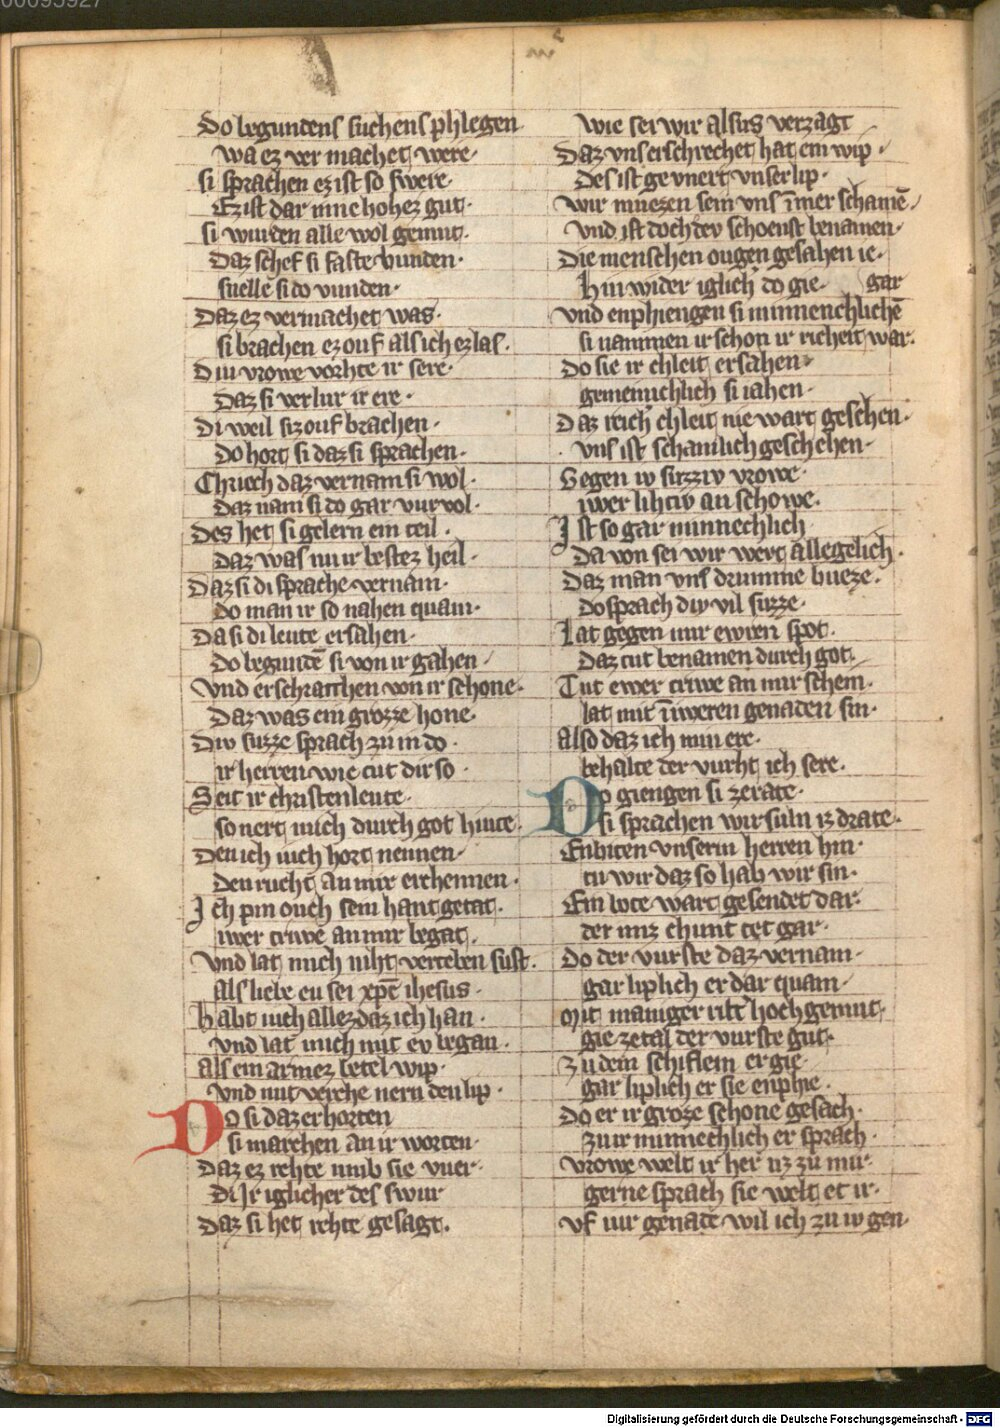 00095927
Do begundens suchens phlegen
wa ez ver machet were·
si sprachen ez ist so swere·
Ez ist dar inne hohez gut·
si wurden alle wol gemut·
Daz schef si faste bunden·
snelle si do vunden·
Daz ez vermachet was·
si brachen ez ouf als ich ez las·
Diu vrowe vorhte ir sere·
Daz si verlur ir ere·
Di weil siz ouf brachen·
Do hort si daz si sprachen·
Chriech daz vernam si wol·
Daz nam si do gar vur vol·
Des het si gelern ein teil·
Daz was nu ir bestez heil·
Daz si di sprache vernam·
Do man ir so nahen quam·
Da si di leute ersahen·
Do begundē si von ir gahen·
Vnd erschracchen von ir schone·
Daz was ein grozze hone·
Diw suzze sprach zu in do·
ir herren wie tut dir so·
Seit ir christenleute·
so nert mich durch got hiute·
Den ich iuch hort nennen·
Den rucht an mir erchennen·
Ich pin ouch sein hantgetat·
iwer triwe an mir begat·
Vnd lat mich niht verteben sust·
Als liebe eu sei xp̄c ihesus·
Habt iuch allez daz ich han·
vnd lat mich mit ev began·
Als ein armez betel wip·
Vnd mit verche nern den lip·
Do si daz erhorten
si marchen an ir worten·
Daz ez rehte umb sie vuer·
Di Ir iglicher des swur
Daz si het rehte gesagt·
wie sei wir alsus verzagt
Daz vns erschrechet hat ein wip·
Des ist gevnert vnser lip·
wir muezen sein vns īmer schamē·
Vnd ist doch dev schoenst benamen·
Die menschen ougen gesahen ie·
Hin wider iglich do gie· gar
Vnd enphiengen si minnenchlichē
si nammen ir schon ir richeit war·
Do sie ir chleit ersahen·
gemeinichlich si iahen·
Daz reich chleit nie wart gesehen·
vns ist schamlich geschehen·
Gegen iv suzziv vrowe·
iwer lihtiv an schowe·
Ist so gar minnechlich
Da von sei wir wert allegelich·
Daz man vns drumme bueze·
Do sprach div vil suzze·
Lat gegen mir ewren spot·
Daz tut benamen durch got·
Tut ewer triwe an mir schein·
lat mit iweren genaden sin·
Also daz ich min ere·
behalte der vurht ich sere·
Do giengen si ze rate·
si sprachen wir suln iz drate·
Enbiten vnserm herren hin·
tu wir daz so hab wir sin·
Ein bote wart gesendet dar·
der imz chunt tet gar·
Do der vurste daz vernam·
gar liplich er dar quam·
Mit maniger rilt hochgemut·
gie zetal der vurste gut·
Zu dem schiflein er gie·
gar liplich er sie enphie·
Do er ir groze schone gesach·
zu ir minnechlich er sprach·
Vrowe welt ir her uz zu mir·
gerne sprach sie welt et ir·
vf iur genade wil ich zu iv gen·
Digitalisierung gefördert durch die Deutsche Forschungsgemeinschaft - DFG